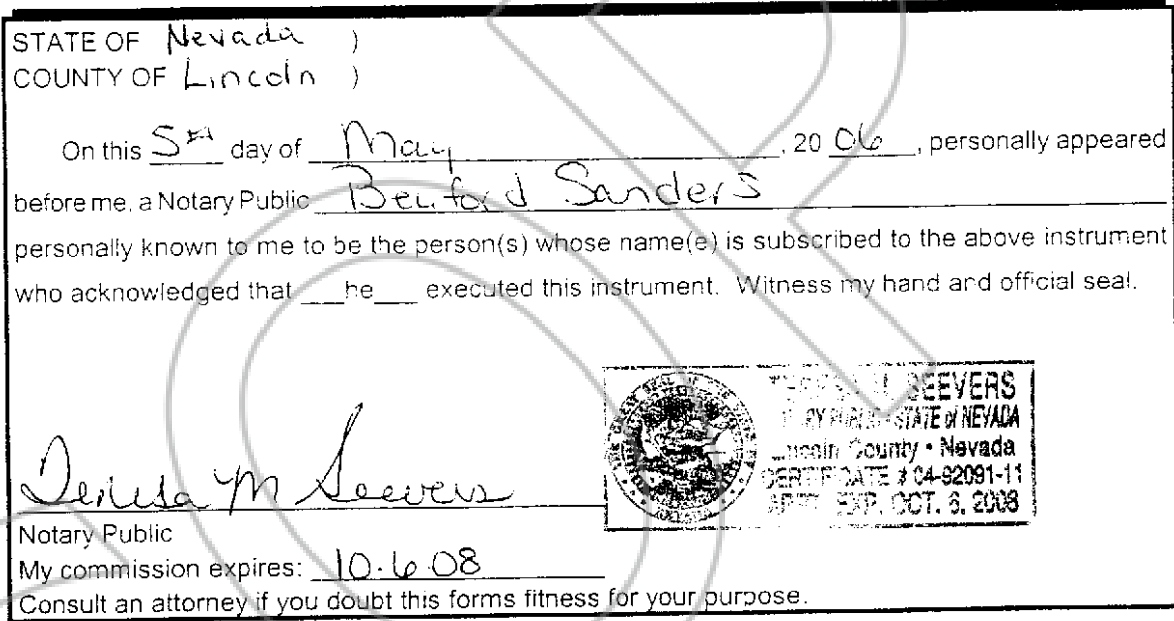 STATE OF Nevada )
COUNTY OF Lincoln )
On this 5th day of May, 20 06, personally appeared
before me, a Notary Public Benford Sanders
personally known to me to be the person(s) whose name(e) is subscribed to the above instrument
who acknowledged that ___he___ executed this instrument. Witness my hand and official seal.
SEEVERS
PUBLIC - STATE of NEVADA
Lincoln County • Nevada
CERTIFICATE # 04-92091-11
APPT. EXP. OCT. 6, 2008
M Seevers
Notary Public
My commission expires: 10.6.08
Consult an attorney if you doubt this forms fitness for your purpose.